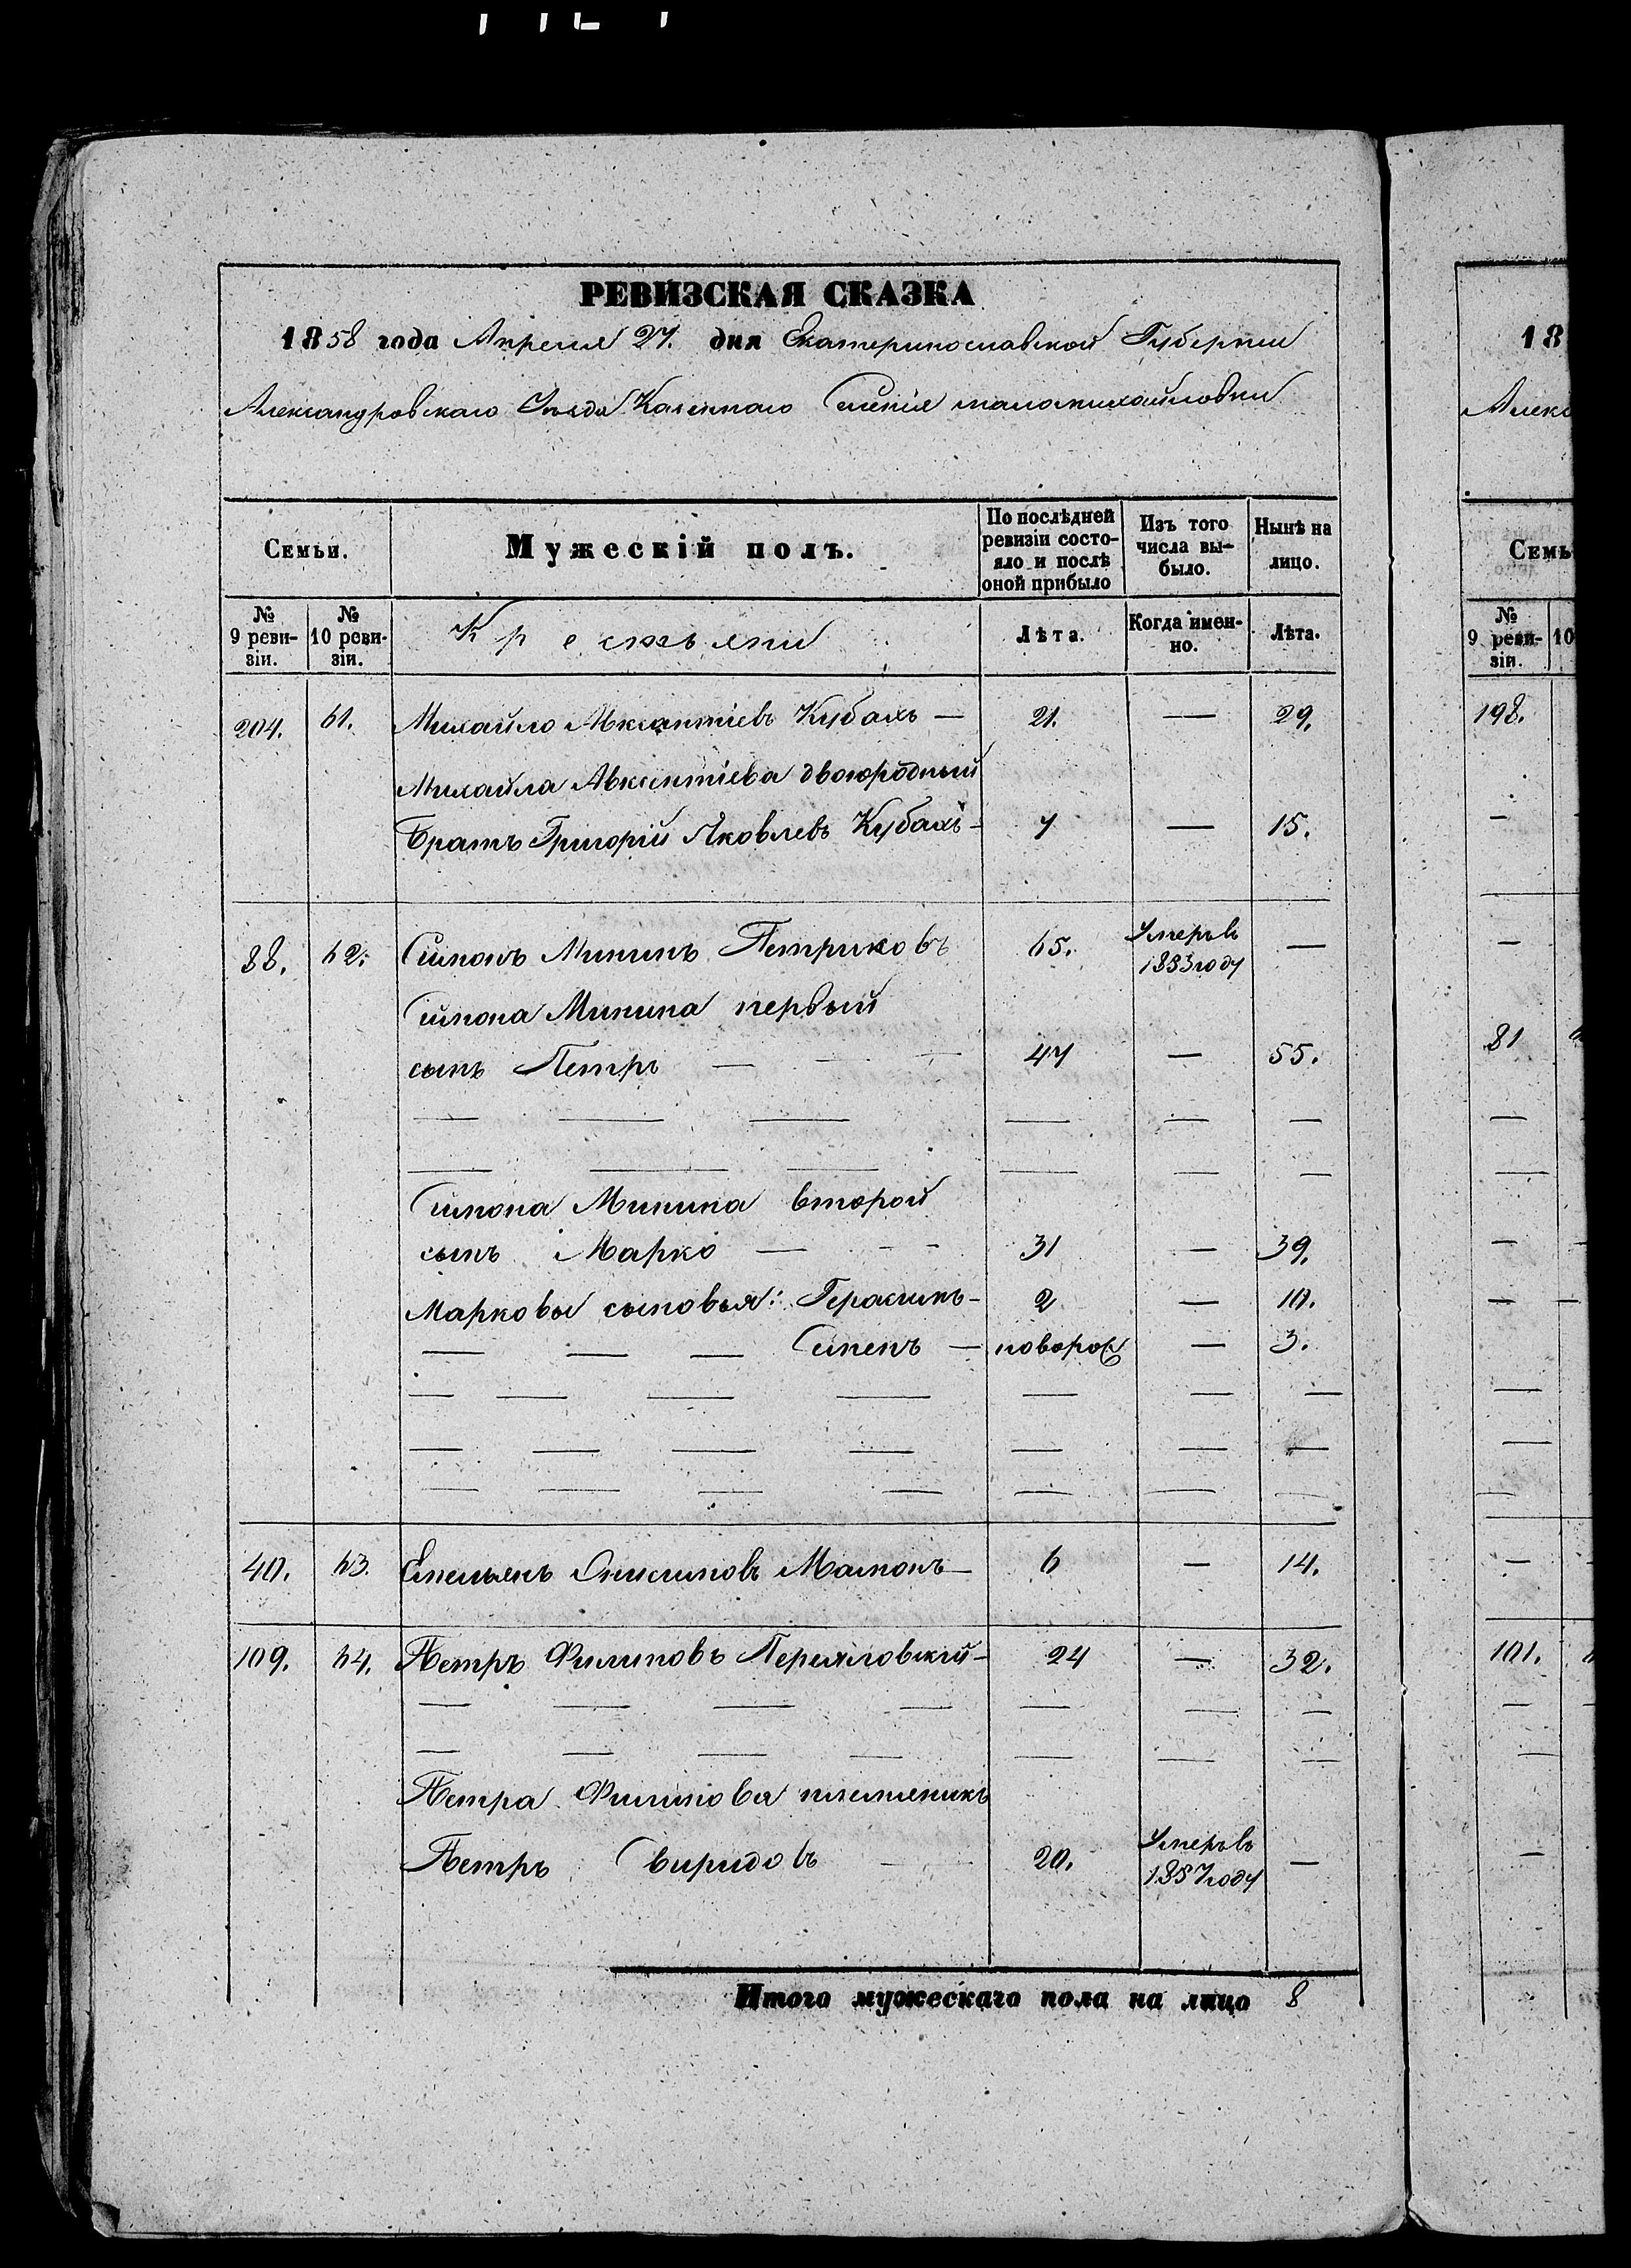 РЕВИЗСКАЯ СКАЗКА
1858 года Апреля 27. дня Екатеринославской Губернии
Александровскаго Уѣзда Казеннаго Селенія маломихайловки
Семьи.
Мужескій полъ.
По послѣдней ревизіи состояло и послѣ оной прибыло
Изъ того числа выбыло.
Нынѣ на лицо.
№ 9 ревизіи.
№ 10 ревизіи.
Крестьяни
Лѣта.
Когда именно.
Лѣта.
204. 61. Михайло Авксентіевъ — 21. — 29.
Михайла Авксентіева двоюродный
Братъ Григорій Яковлевъ — 7 — 15.
88. 62. Симонъ Мининъ Петриковъ 65. Умеръ въ 1853 году —
Симона Минина первый
сынъ Петръ — — — 47 — 55.
— — — — — —
— — — — — —
Симона Минина второй
сынъ Марко — - - 31 — 39.
Марковы сыновья: Герасимъ - 2 — 10.
— — — Сименъ — новорож — 3.
— — — — — — —
— — — — — — —
— — — — — — —
40. 63. Емельянъ Онисимовъ Мамонъ — 6 — 14.
109. 64. Петръ Филиповъ - 24 — 32.
— — — — — — —
— — — — — — —
Петра Филипова племяникъ
Петръ Свиридовъ — — 20. Умеръ въ 1857 году —
Итого мужескаго пола на лицо 8
18
Алекс
Семь
№ 9 ревизіи.
10
198.
—
—
81
—
—
—
—
—
—
—
—
101.
—
—
—